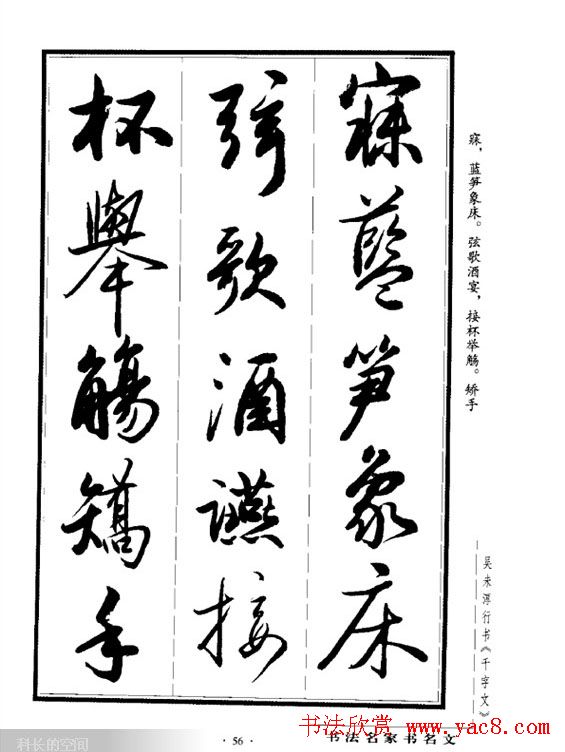 寐藍筍象床
弦歌酒讌接
杯舉觴矯手
寐，蓝笋象床。弦歌酒宴，接杯举觞。矫手
吴未淳行书《千字文》
书法欣赏 www.yac8.com
·56·
书法名家书名文
科长的空间